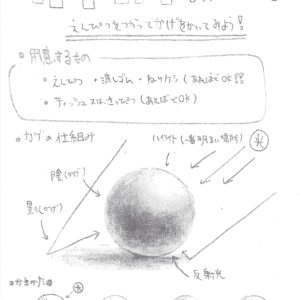 えんぴつをつかってかげをかいてみよう!
用意するもの
・えんぴつ ・消しゴム ・ねりケシ(あればOK)
・ティッシュ又はさっぴつ(あればでOK)
カゲの仕組み
ハイライト(一番明るい場所)
光
陰(かげ)
影(かげ)
反射光
かきかた
光